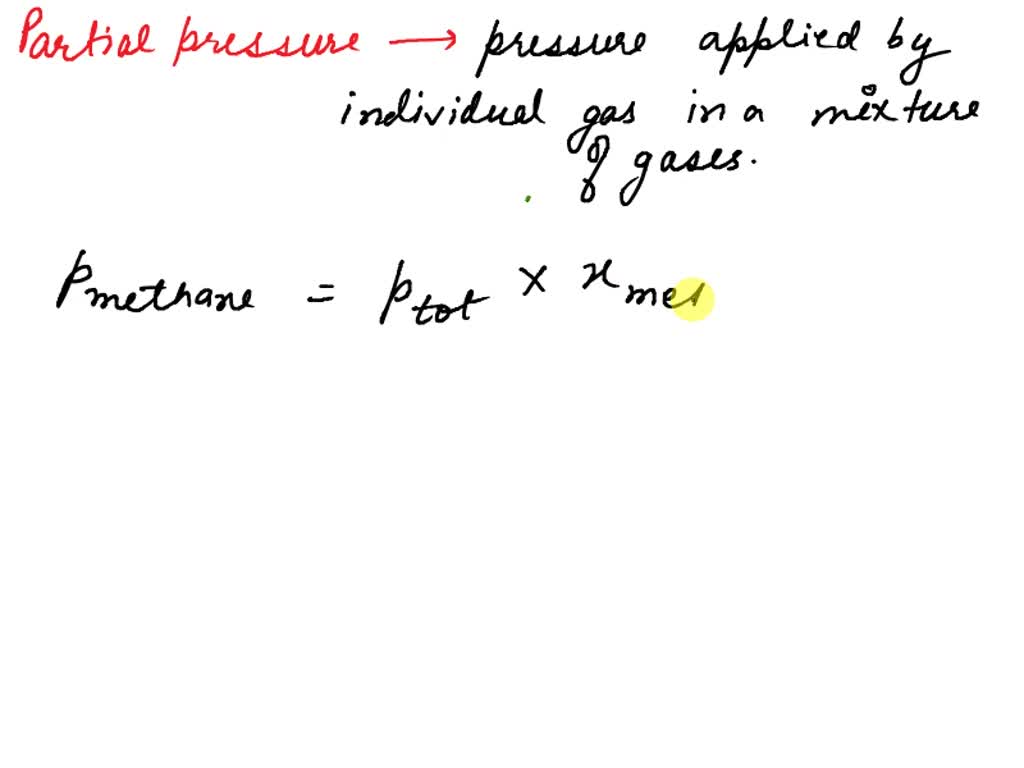 Partial pressure → pressure applied by
individual gas in a mixture
of gases.
Pmethane = Ptot × x met